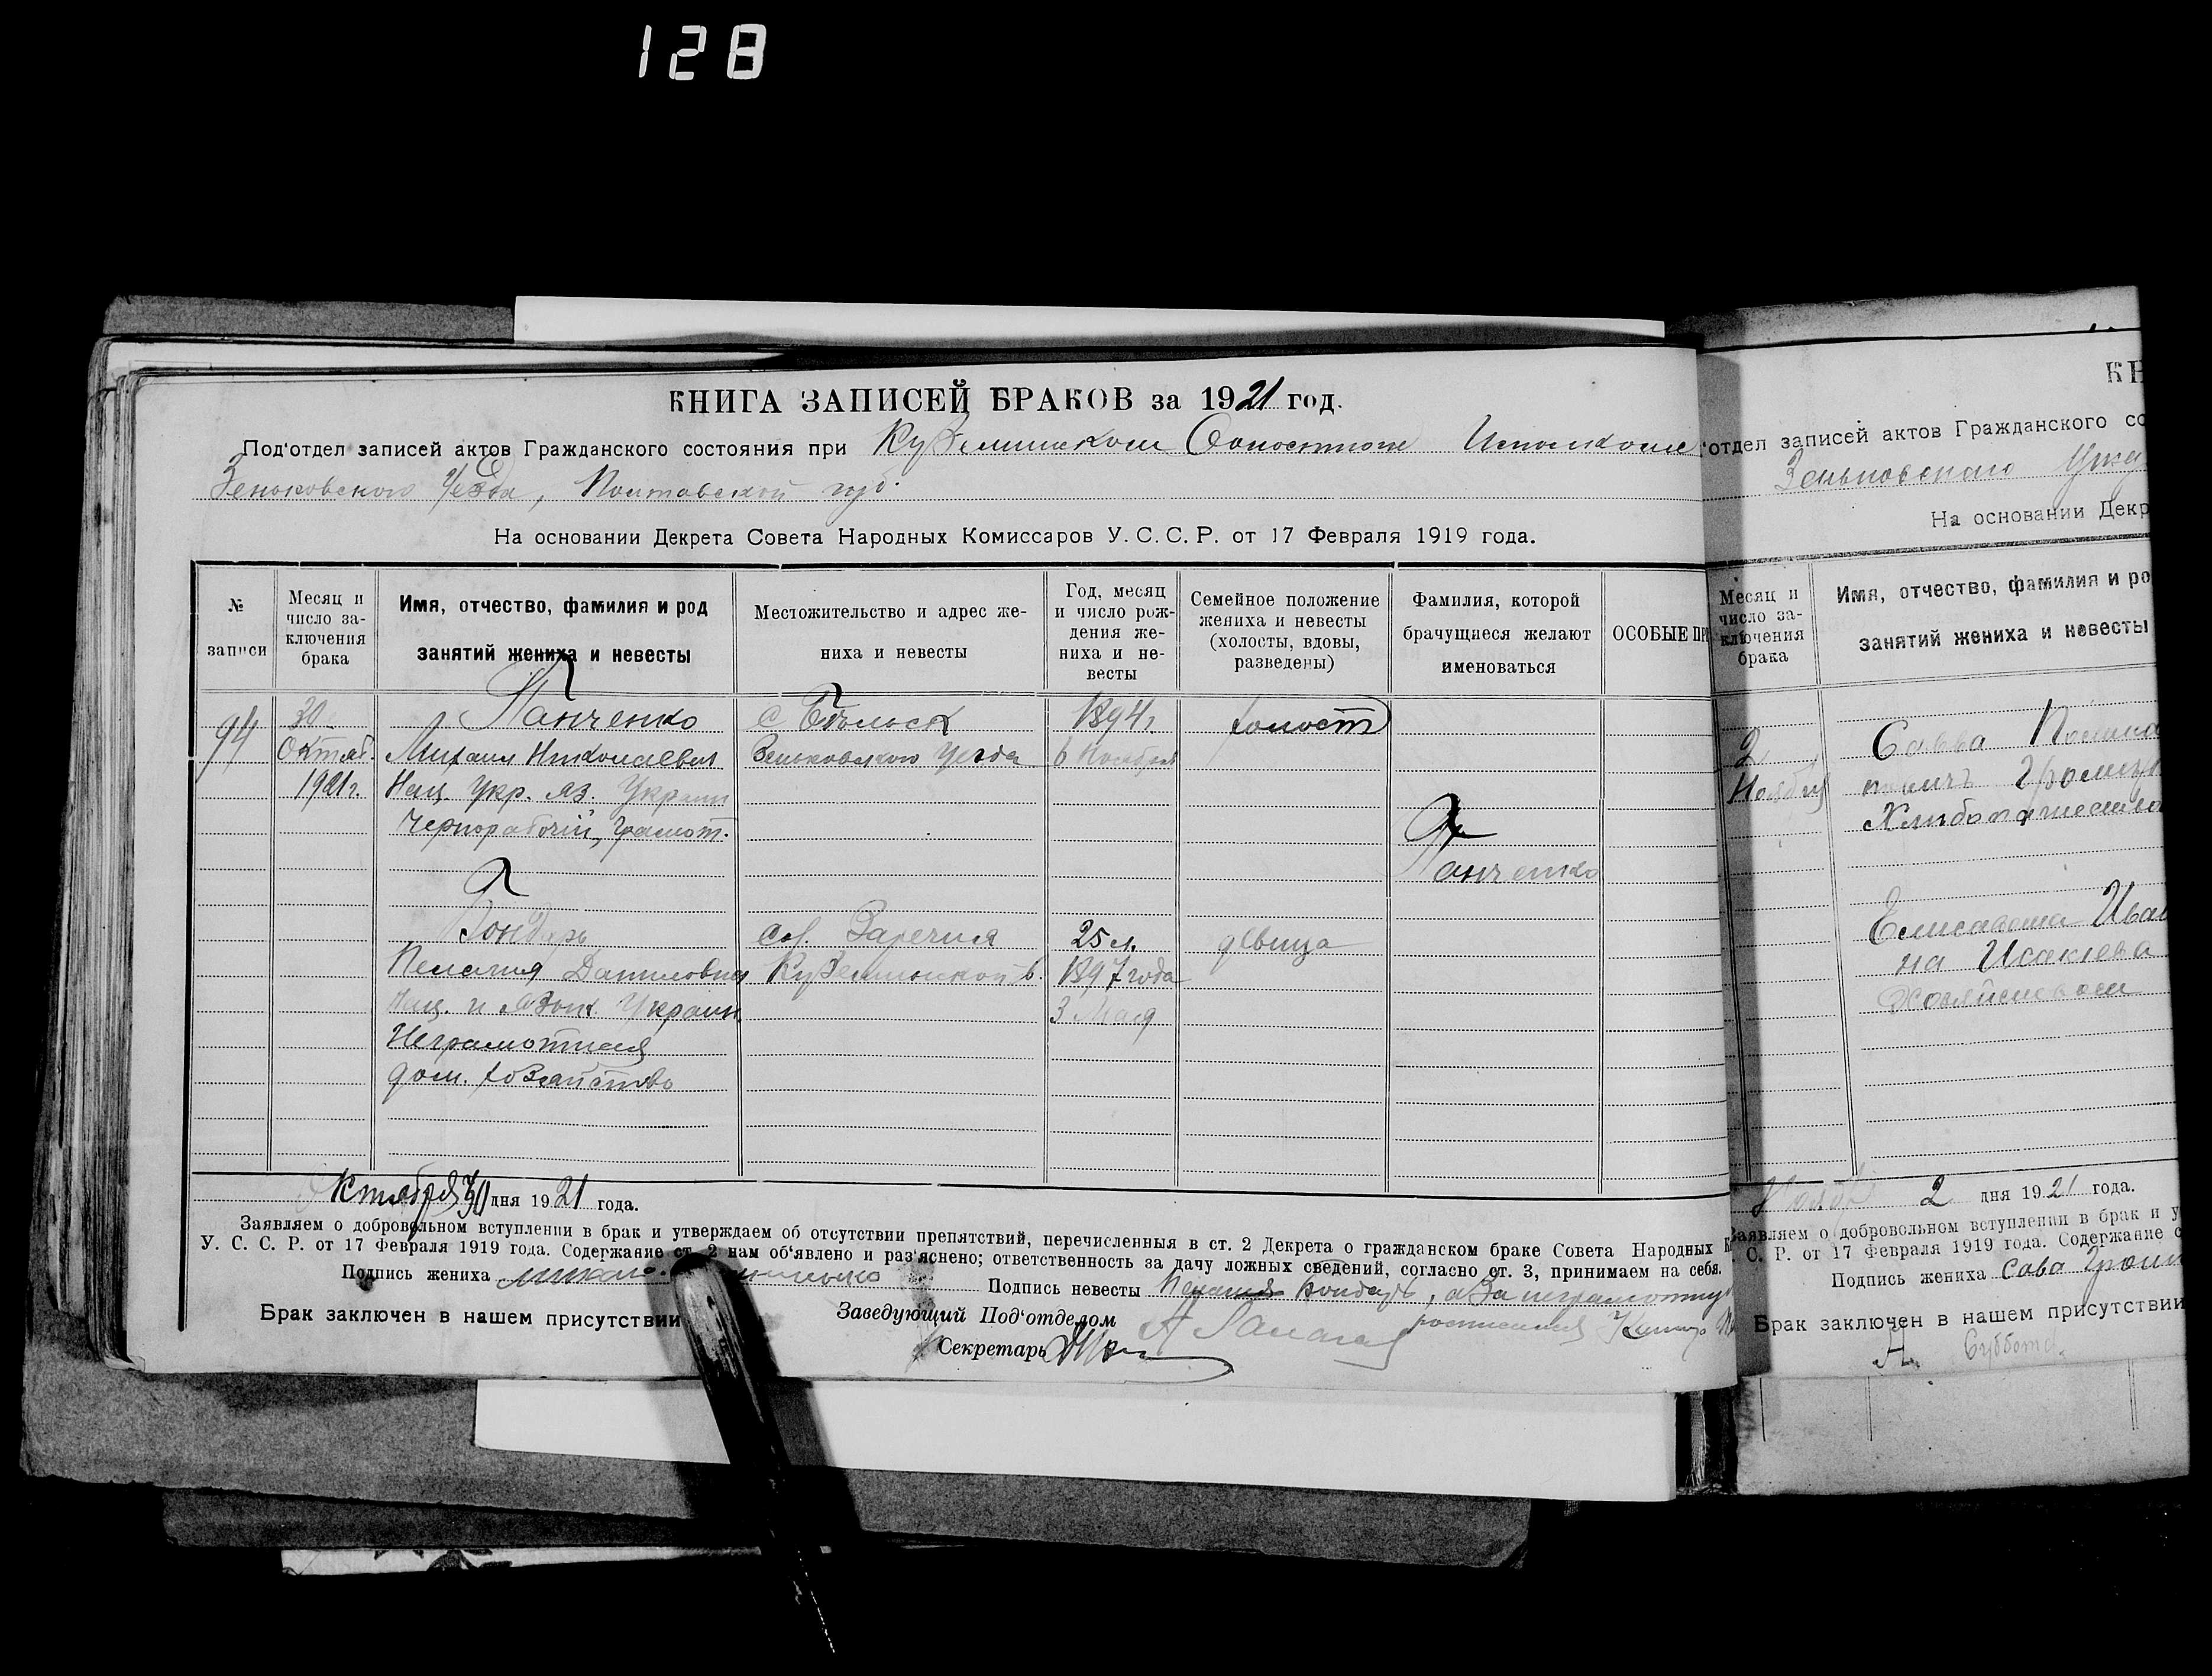 128
КНИГА ЗАПИСЕЙ БРАКОВ за 1921 год.
Под'отдел записей актов Гражданского состояния при Куземинском Исполкоме
Зеньковского Уезда, Полтавской губ.
На основании Декрета Совета Народных Комиссаров У. С. С. Р. от 17 Февраля 1919 года.
№ записи
Месяц и число за-ключения брака
Имя, отчество, фамилия и род занятий жениха и невесты
Местожительство и адрес же-ниха и невесты
Год, месяц и число рож-дения же-ниха и не-весты
Семейное положение жениха и невесты (холосты, вдовы, разведены)
Фамилия, которой брачущиеся желают именоваться
ОСОБЫЕ ПР
94
30
Октяб.
1921 г.
Панченко
Михаил Николаевич
Нац. Укр. яз. Украин
Чернорабочий, грамот.
с Бельск
Зеньковского уезда
1894 г.
6 Ноября
холост
Панченко
Бондарь
Пелагия Даниловна
Нац. и язык Украин.
Неграмотная
дом. хозяйство
Заречья
Куземинской в.
25 л.
1897 года
3 Мая
девица
Октября 30 дня 1921 года.
Заявляем о добровольном вступлении в брак и утверждаем об отсутствии препятствий, перечисленныя в ст. 2 Декрета о гражданском браке Совета Народных К
У. С. С. Р. от 17 Февраля 1919 года. Содержание ст. 2 нам об'явлено и раз'яснено; ответственность за дачу ложных сведений, согласно ст. 3, принимаем на себя.
Подпись жениха
Подпись невесты Пелагея Бондарь, а за неграмотну
Брак заключен в нашем присутствии
Заведующий Под'отделом
Секретарь
КН
'отдел записей актов Гражданского со
Зеньковского Уезд
На основании Декр
Месяц и число за-ключения брака
Имя, отчество, фамилия и ро
занятий жениха и невесты
2
Ноября
Савва
Елисавета Иван
на Исакиева
Хозяйством
2 дня 1921 года.
Заявляем о добровольном вступлении в брак и у
С. Р. от 17 Февраля 1919 года. Содержание с
Подпись жениха Сава
Брак заключен в нашем присутствии
Н. Суббота